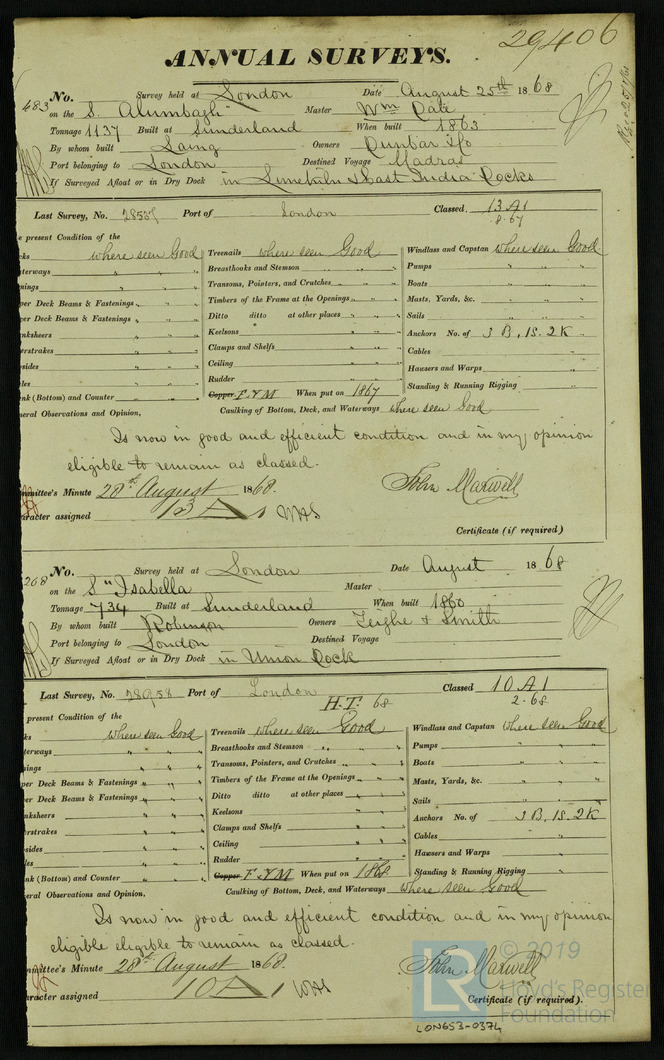 29406
ANNUAL SURVEYS.
483 No. Survey held at London Date August 25th 1868
on the S. "Alumbagh" Master Wm Date
Tonnage 1137 Built at Sunderland When built 1863
By whom built Laing Owners Dunbar & Co
Port belonging to London Destined Voyage Madras
If Surveyed Afloat or in Dry Dock in Limekiln & East India Docks
Last Survey, No. Port of London Classed 13 A1
8.67
e present Condition of the
ks where seen Good Treenails where seen Good Windlass and Capstan where seen Good
terways " " " Breasthooks and Stemson " " " Pumps " "
nings " " " Transoms, Pointers, and Crutches " " " Boats " "
per Deck Beams & Fastenings " " " Timbers of the Frame at the Openings " " " Masts, Yards, &c. " "
wer Deck Beams & Fastenings " " " Ditto ditto at other places " " " Sails " "
nksheers " " " Keelsons " " " Anchors No. of 3 B, 1S. 2K
erstrakes " " " Clamps and Shelfs " " " Cables " "
sides " " " Ceiling " " " Hawsers and Warps " "
les " " " Rudder " " " Standing & Running Rigging "
nk (Bottom) and Counter " " " Copper F.Y.M When put on 1867
eral Observations and Opinion, Caulking of Bottom, Deck, and Waterways where seen Good
Is now in good and efficient condition and in my opinion
eligible to remain as classed.
mmittee's Minute 28th August 1868. John Maxwell
aracter assigned 13 A 1
Certificate (if required)
268 No. Survey held at London Date August 1868
on the S "Isabella Master
Tonnage 734 Built at Sunderland When built 1860
By whom built Robinson Owners Teighe & Smith
Port belonging to London Destined Voyage
If Surveyed Afloat or in Dry Dock in Union Dock
Last Survey, No. 28958 Port of London Classed 10 A1
H.T. 68 2-68
present Condition of the
ks where seen Good Treenails where seen Good Windlass and Capstan where seen Good
terways " " " Breasthooks and Stemson " " " Pumps " "
nings " " " Transoms, Pointers, and Crutches " " " Boats " "
per Deck Beams & Fastenings " " " Timbers of the Frame at the Openings " " " Masts, Yards, &c. " "
wer Deck Beams & Fastenings " " " Ditto ditto at other places " " " Sails " "
nksheers " " " Keelsons " " " Anchors No. of 3 B, 1S. 2K
erstrakes " " " Clamps and Shelfs " " " Cables " "
sides " " " Ceiling " " " Hawsers and Warps " "
les " " " Rudder " " " Standing & Running Rigging "
nk (Bottom) and Counter " " " Copper F.Y.M When put on 1868
eral Observations and Opinion, Caulking of Bottom, Deck, and Waterways where seen Good
Is now in good and efficient condition and in my opinion
eligible eligible to remain as classed.
mmittee's Minute 28th August 1868. John Maxwell
aracter assigned 10 A 1
Certificate (if required).
LR © 2019
Lloyd's Register
Foundation
LON653-0374